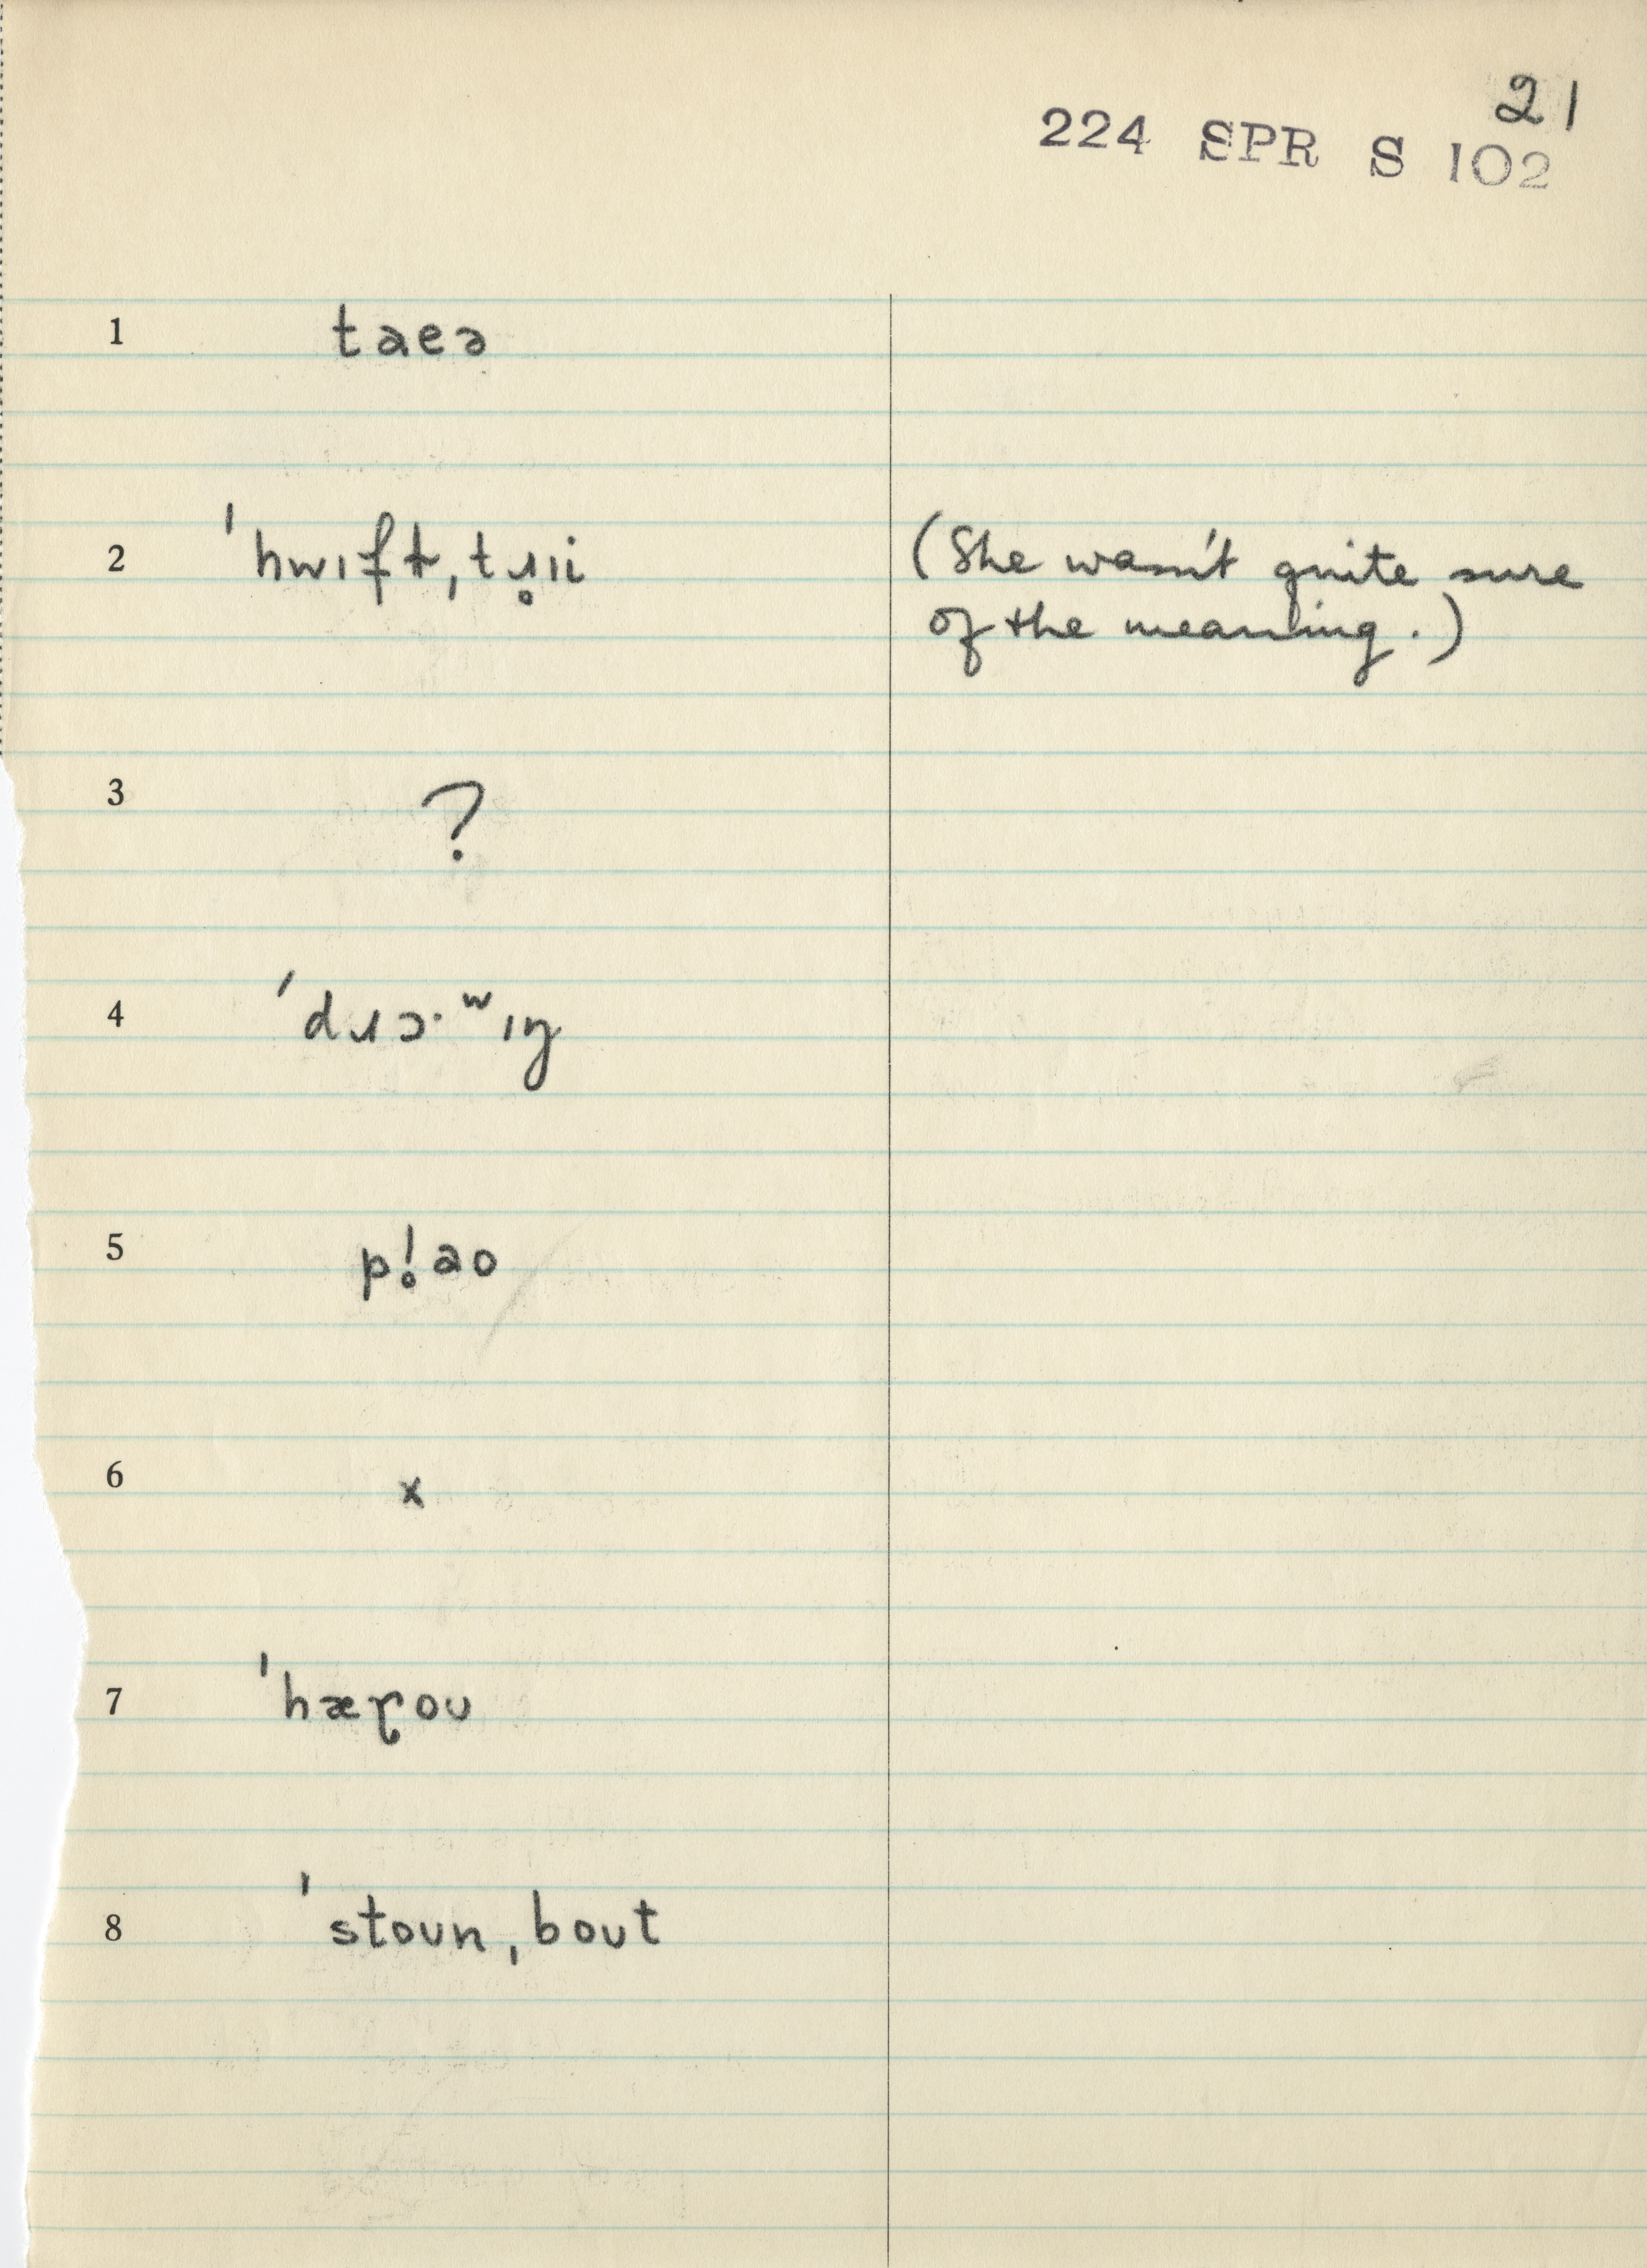 21
224 SPR S 102
1 taeə
2 ˈhwɪft,tɹ̥ɪi (She wasn't quite sure
of the meaning.)
3 ?
4 ˈdɹɔ·ʷɪŋ
5 pl̥ao
6 x
7 ˈhæɽoʊ
8 ˈstoʊn,boʊt